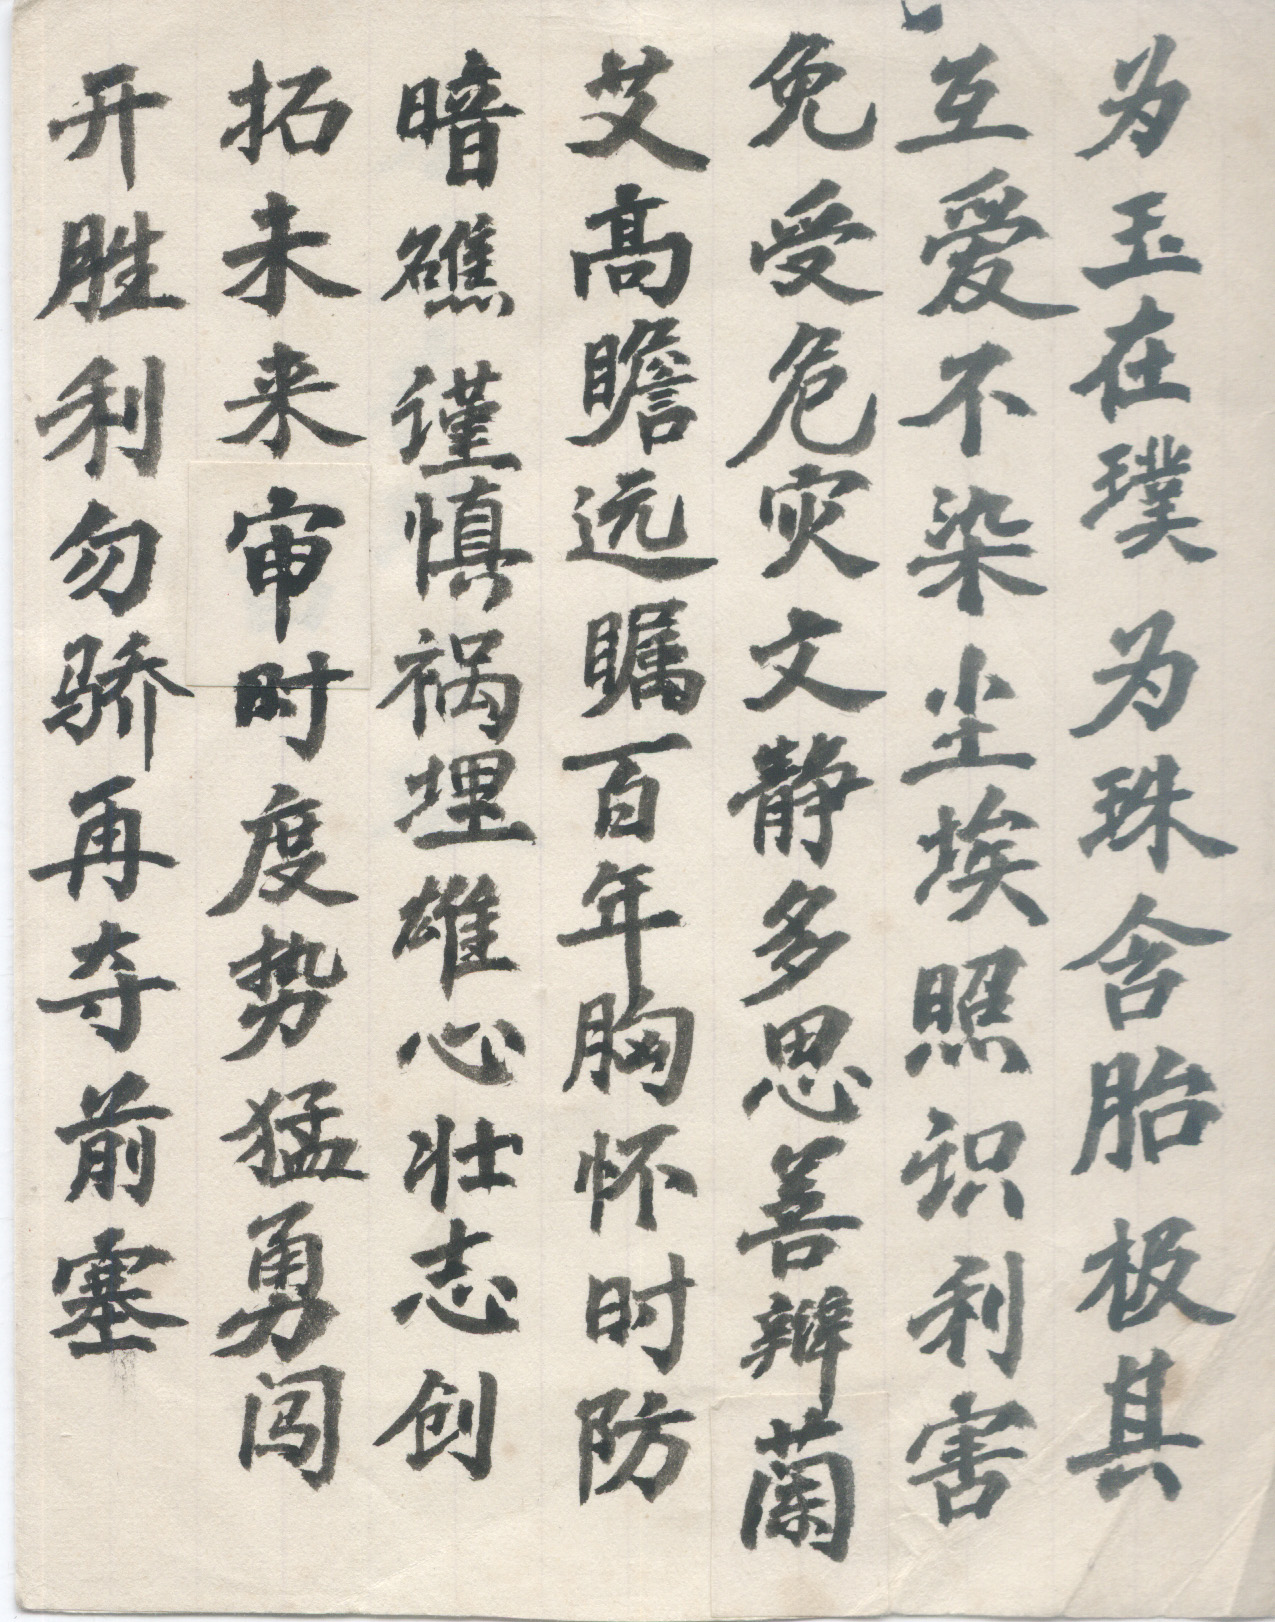 为玉在璞为珠含胎极其
互爱不染尘埃照识利害
免受危灾文静多思善辩兰
艾高瞻远瞩百年胸怀时防
暗礁谨慎祸埋雄心壮志创
拓未来审时度势猛勇闯
开胜利勿骄再夺前塞